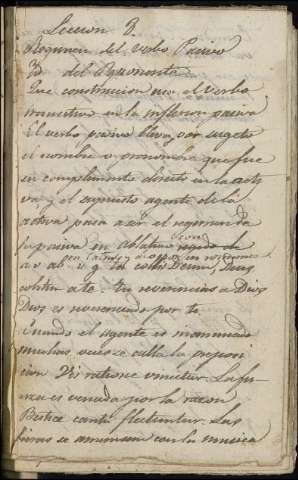 Leccion 3.
Regimen del verbo Pasivo
del Ayuvonante
Que construccion usa el verbo
transitivo en la inflexion pasiva
El verbo pasivo lleva por sugeto
el nombre o pronombre que fue
su complimento directo en la acti
va y el supuesto agente de la
activa pasa a ser el regimen de
la pasiva en ablativo
a o ab. v. g. tu colis Deum, Deus
colitur a te. Tu reverencias a Dios
Dios es reverenciado por ti
Cuando el agente es inanimado
muchas veces se calla la preposi
cion Vis ratione vincitur. La fu
erza es vencida por la razon
Bestiæ cantu flectuntur. Las
fieras se amansan con la musica